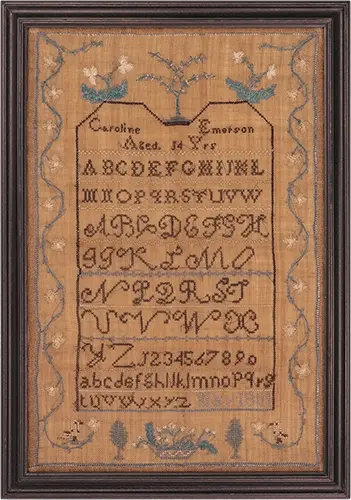 Caroline Emerson
Aged 14 Yrs
ABCDEFGHIJKL
MNOPQRSTUVW
ABCDEFGH
IJKLMO
NPQRST
UVWX
YZ1234567890
abcdefghijklmnopqrs
tuvwxyz